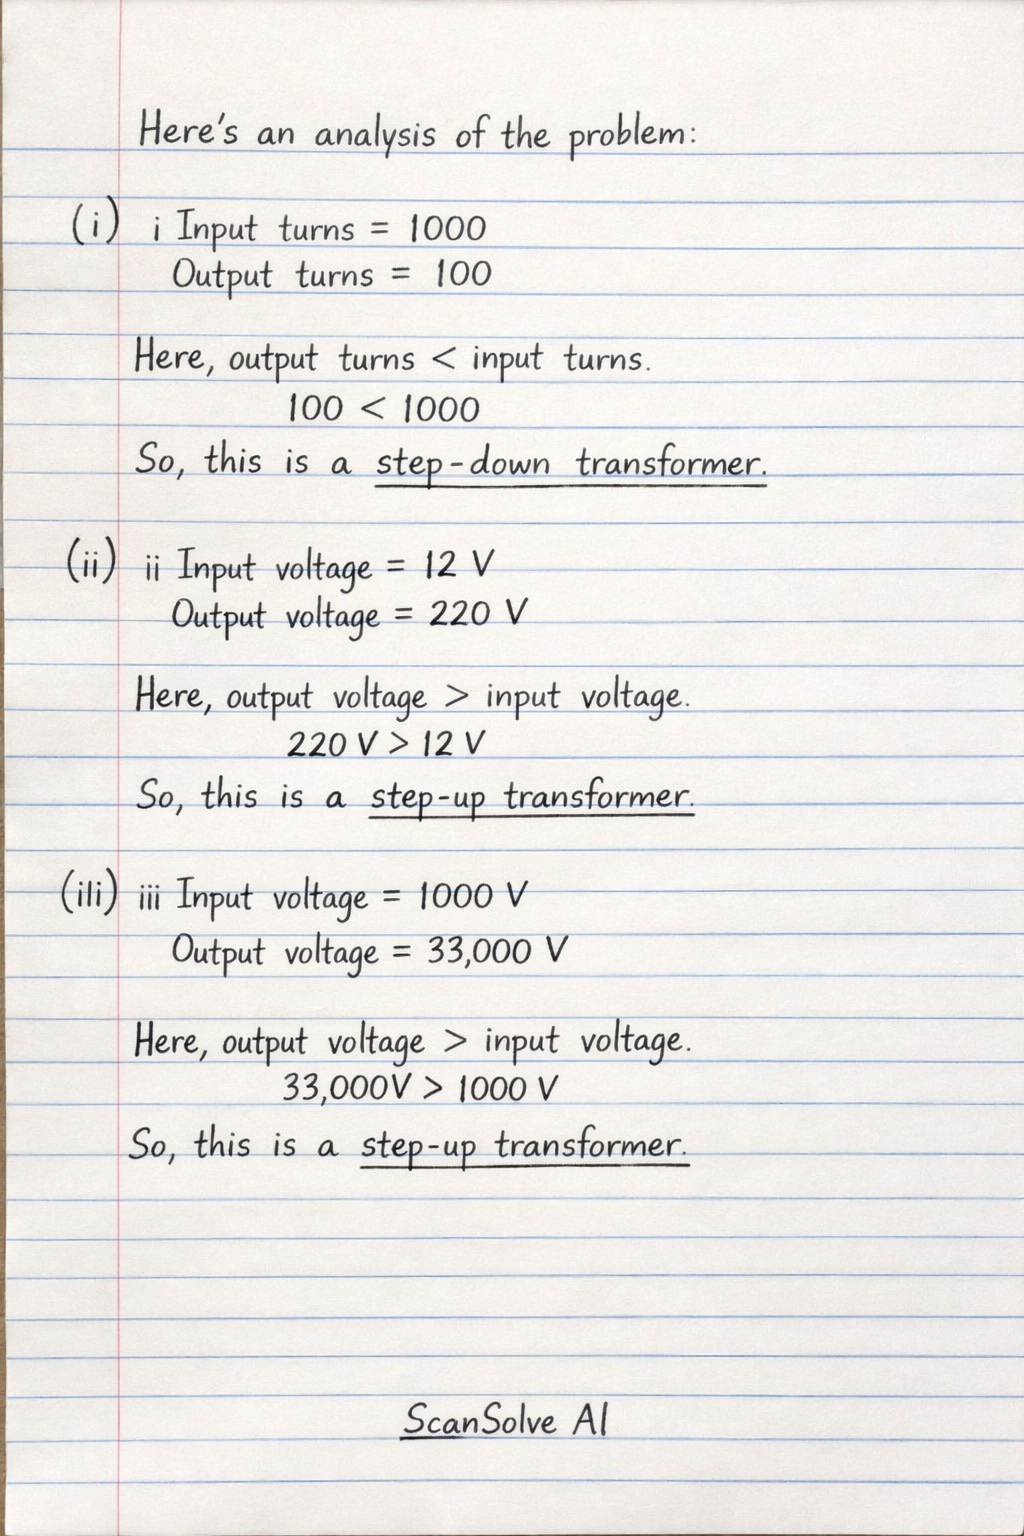 Here's an analysis of the problem:
(i) i Input turns = 1000
Output turns = 100
Here, output turns < input turns.
100 < 1000
So, this is a step-down transformer.
(ii) ii Input voltage = 12 V
Output voltage = 220 V
Here, output voltage > input voltage.
220 V > 12 V
So, this is a step-up transformer.
(iii) iii Input voltage = 1000 V
Output voltage = 33,000 V
Here, output voltage > input voltage.
33,000V > 1000 V
So, this is a step-up transformer.
ScanSolve AI